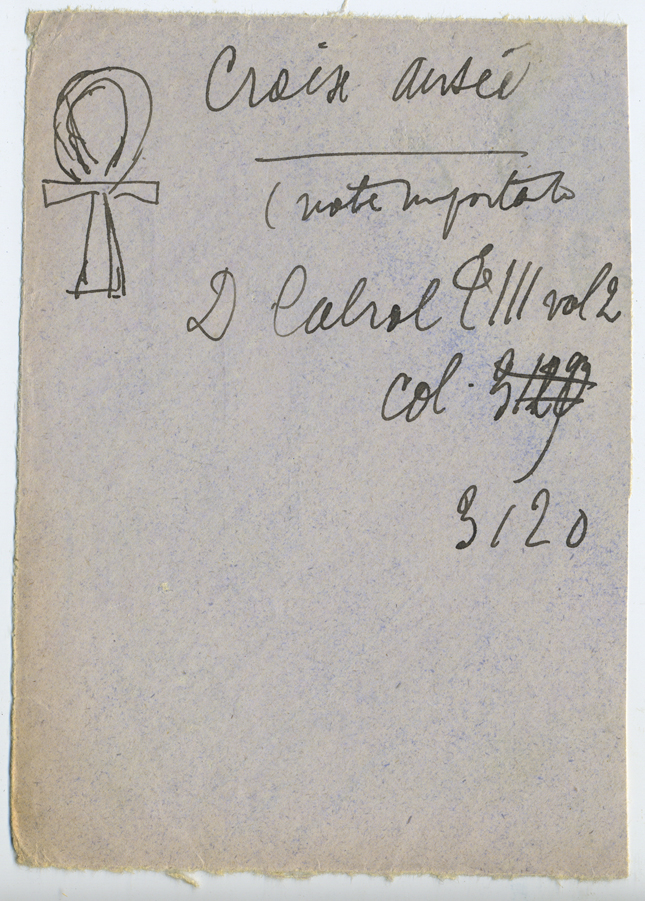 Croix ansée
(note importante
D Cabrol T III vol 2
col. 3120
3120